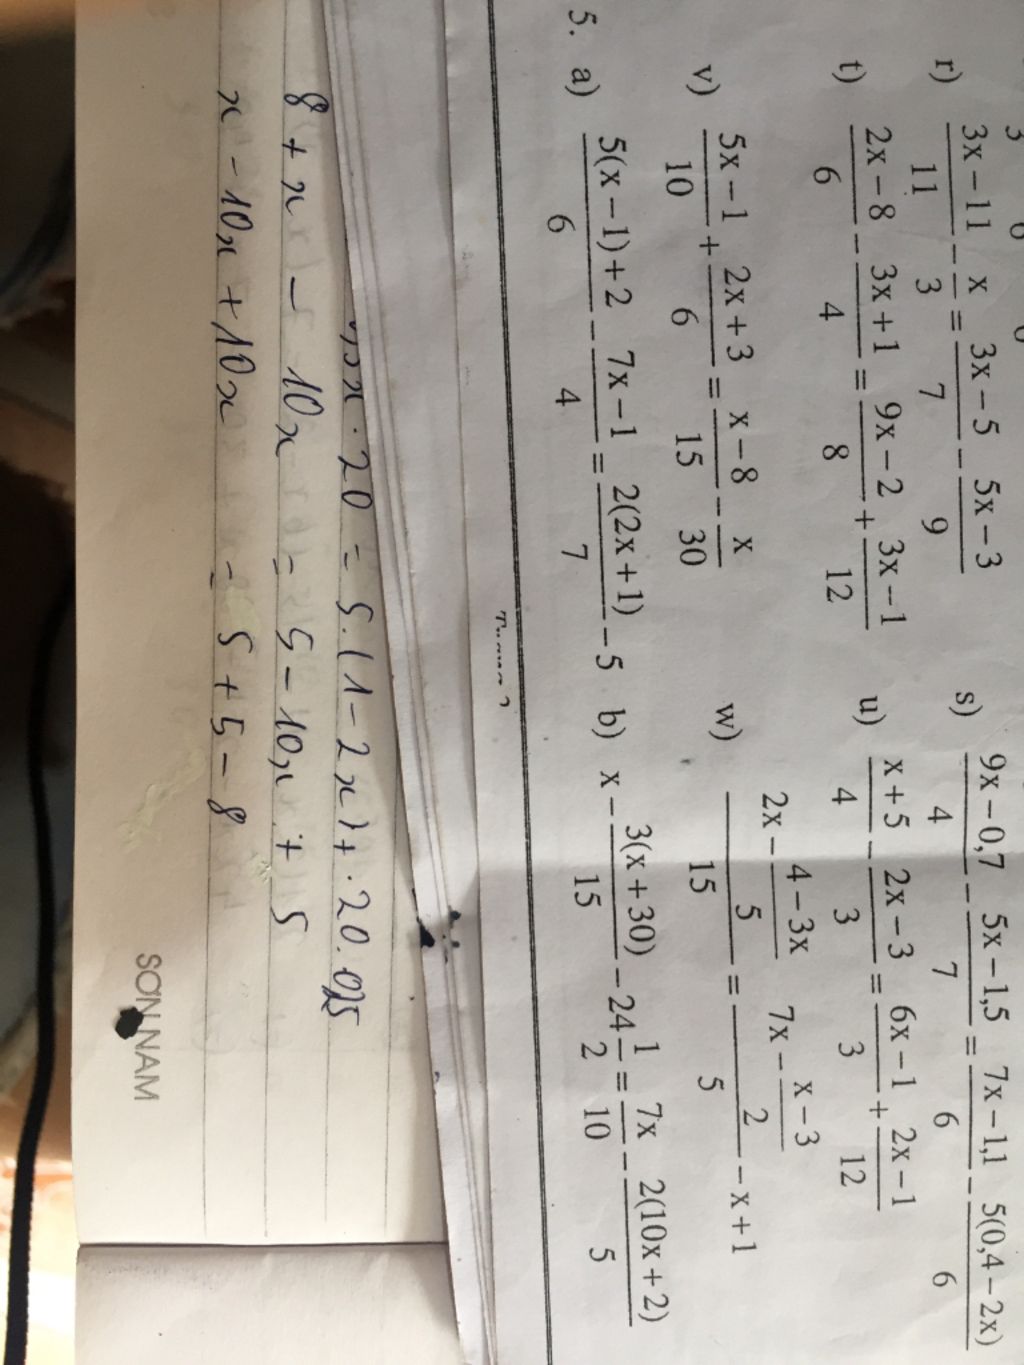 r) \frac{3x-11}{11} - \frac{x}{3} = \frac{3x-5}{7} - \frac{5x-3}{9}
s) \frac{9x-0,7}{4} - \frac{5x-1,5}{7} = \frac{7x-1,1}{6} - \frac{5(0,4-2x)}{6}
t) \frac{2x-8}{6} - \frac{3x+1}{4} = \frac{9x-2}{8} + \frac{3x-1}{12}
u) \frac{x+5}{4} - \frac{2x-3}{3} = \frac{6x-1}{3} + \frac{2x-1}{12}
v) \frac{5x-1}{10} + \frac{2x+3}{6} = \frac{x-8}{15} - \frac{x}{30}
w) \frac{2x-\frac{4-3x}{5}}{15} = \frac{7x-\frac{x-3}{2}}{5} - x+1
5. a) \frac{5(x-1)+2}{6} - \frac{7x-1}{4} = \frac{2(2x+1)}{7} - 5
b) x - \frac{3(x+30)}{15} - 24\frac{1}{2} = \frac{7x}{10} - \frac{2(10x+2)}{5}
x . 20 = 5.(1-2x)+.20.025
8 + x - 10x = 5 - 10x + 5
x - 10x + 10x = 5 + 5 - 8
SƠN NAM